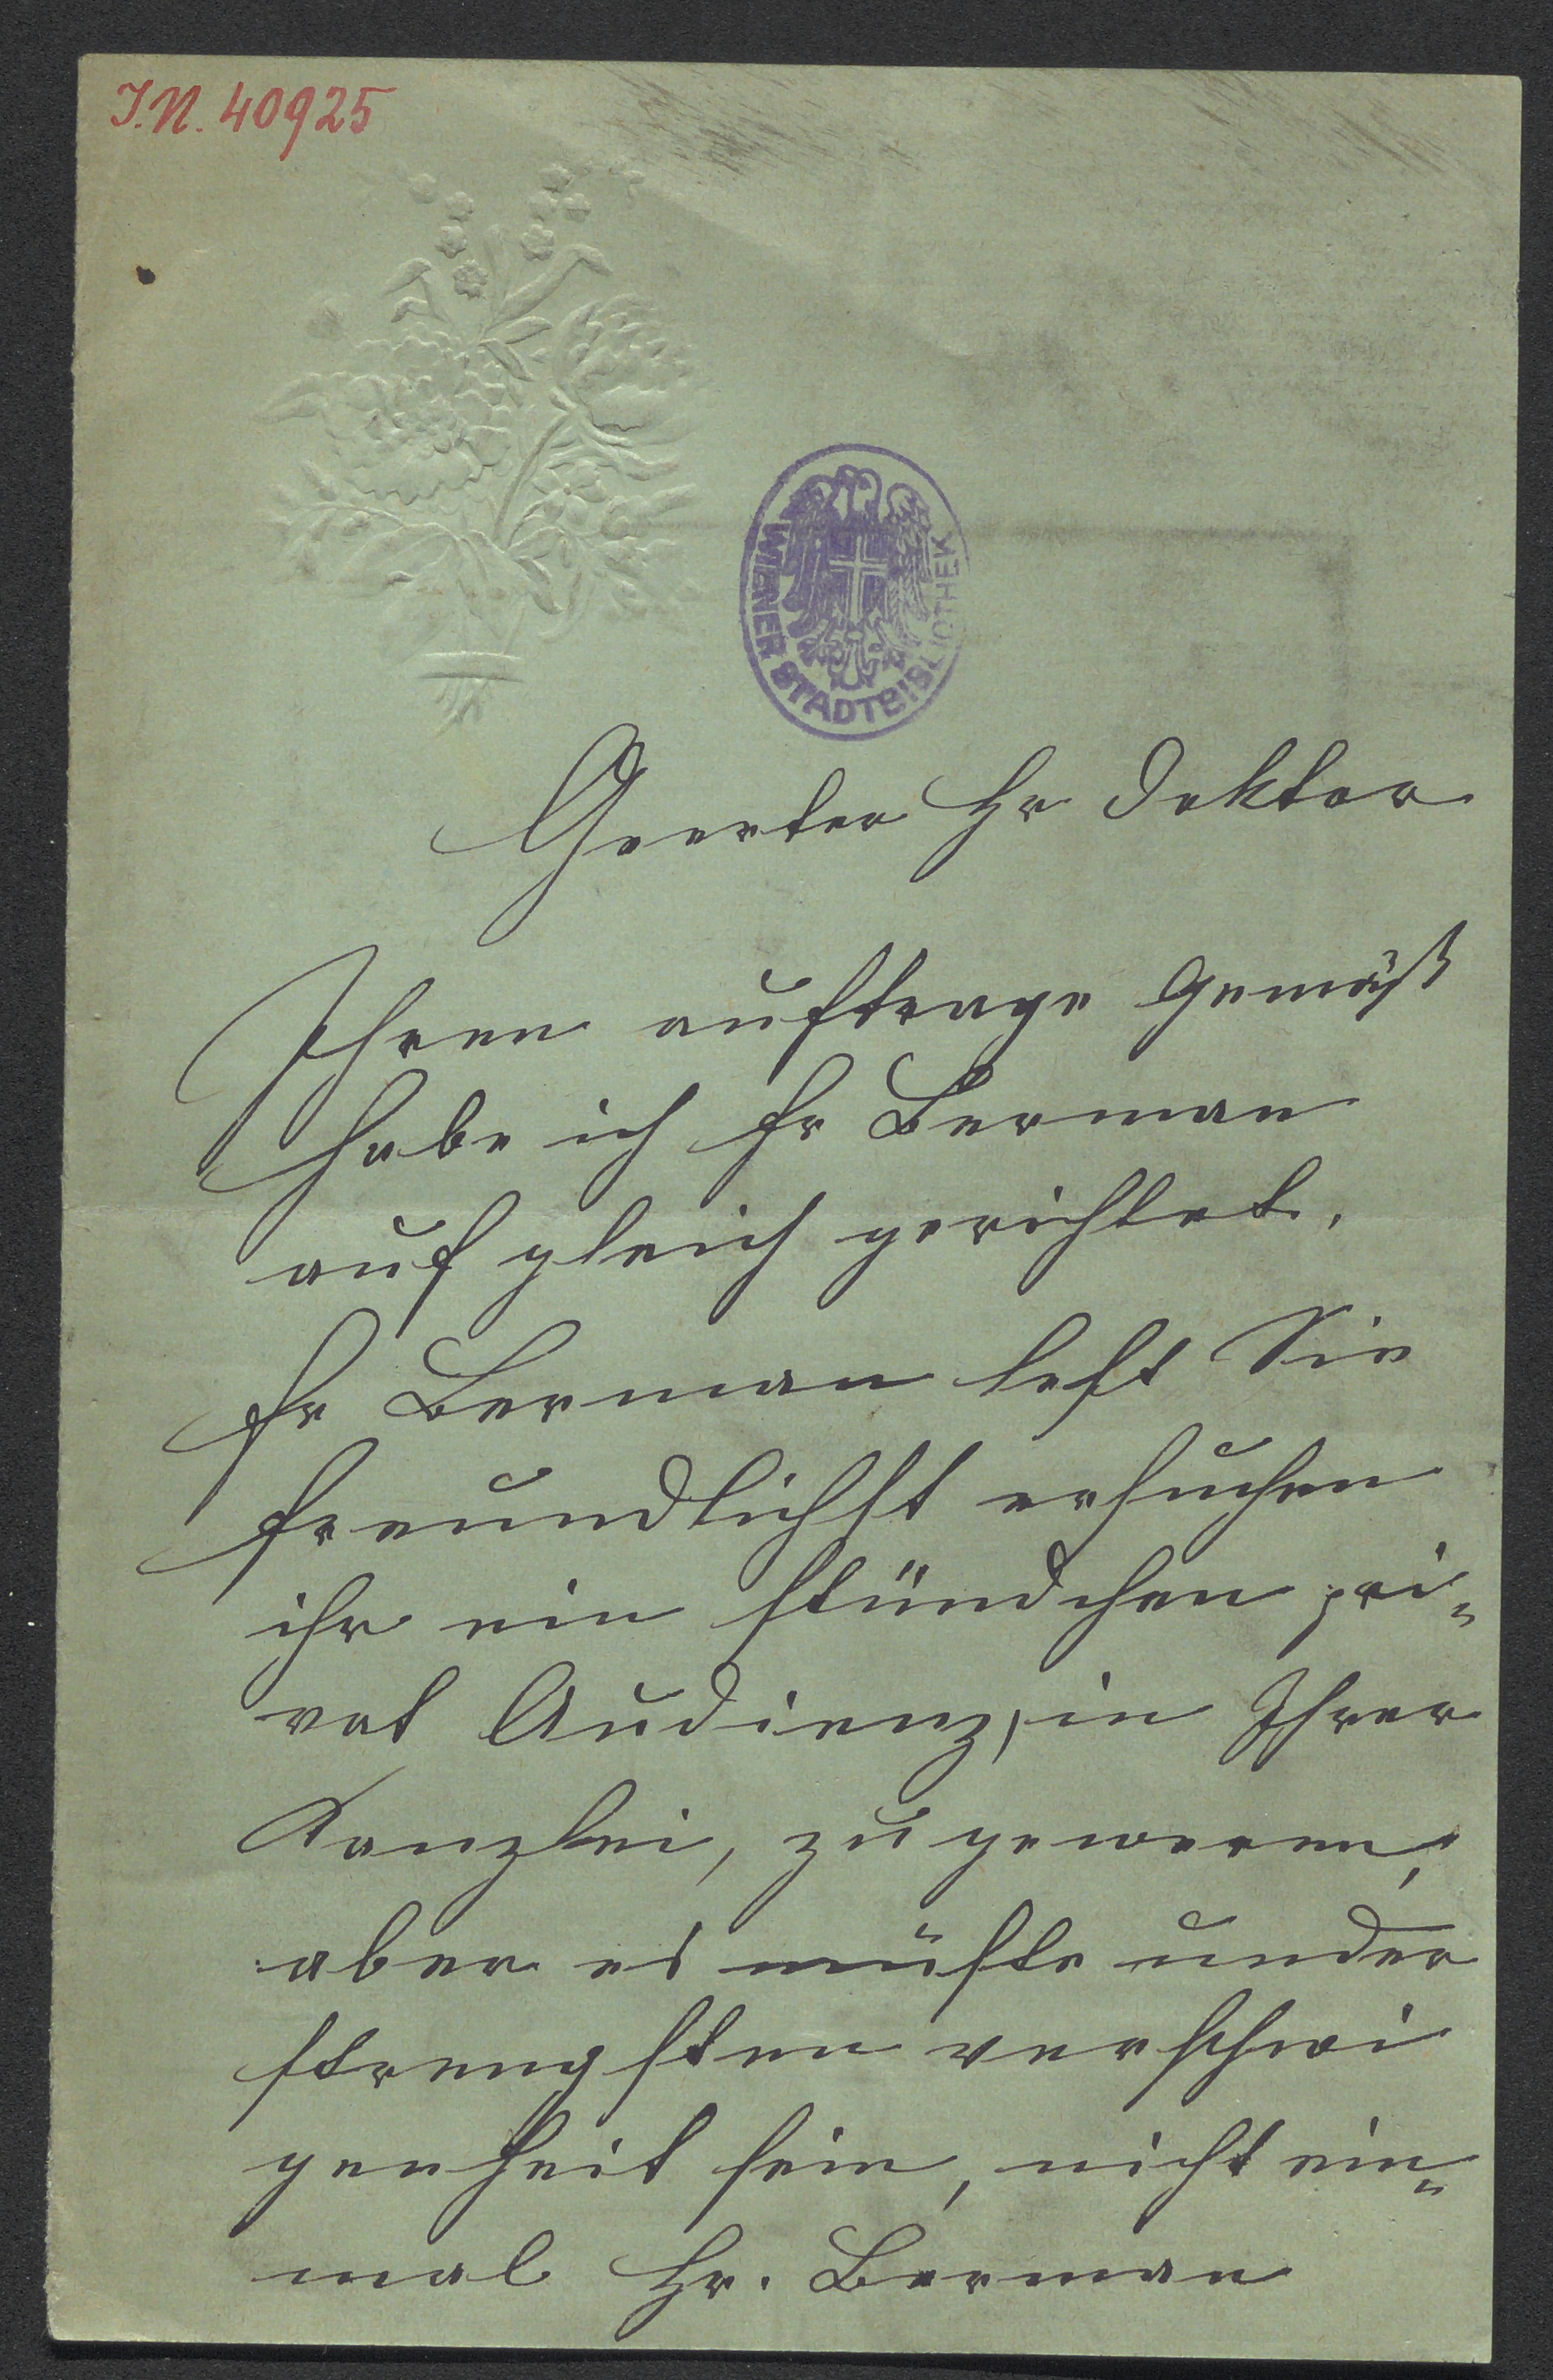 J.N. 40925
WIENER STADTBIBLIOTHEK
Geerter Hr Doktor
Ihren auftrage Gemäß
habe ich Fr Berman
auf gleich gerichtet.
Fr Berman lest Sie
freundlichst ersuchen
ihr ein stündchen pri-
vat Audienz, in Ihrer
Kanzlei, zu geweren,
aber es müste under
strengsten verschwi
genheit sein, nicht ein-
mal Hr. Berman